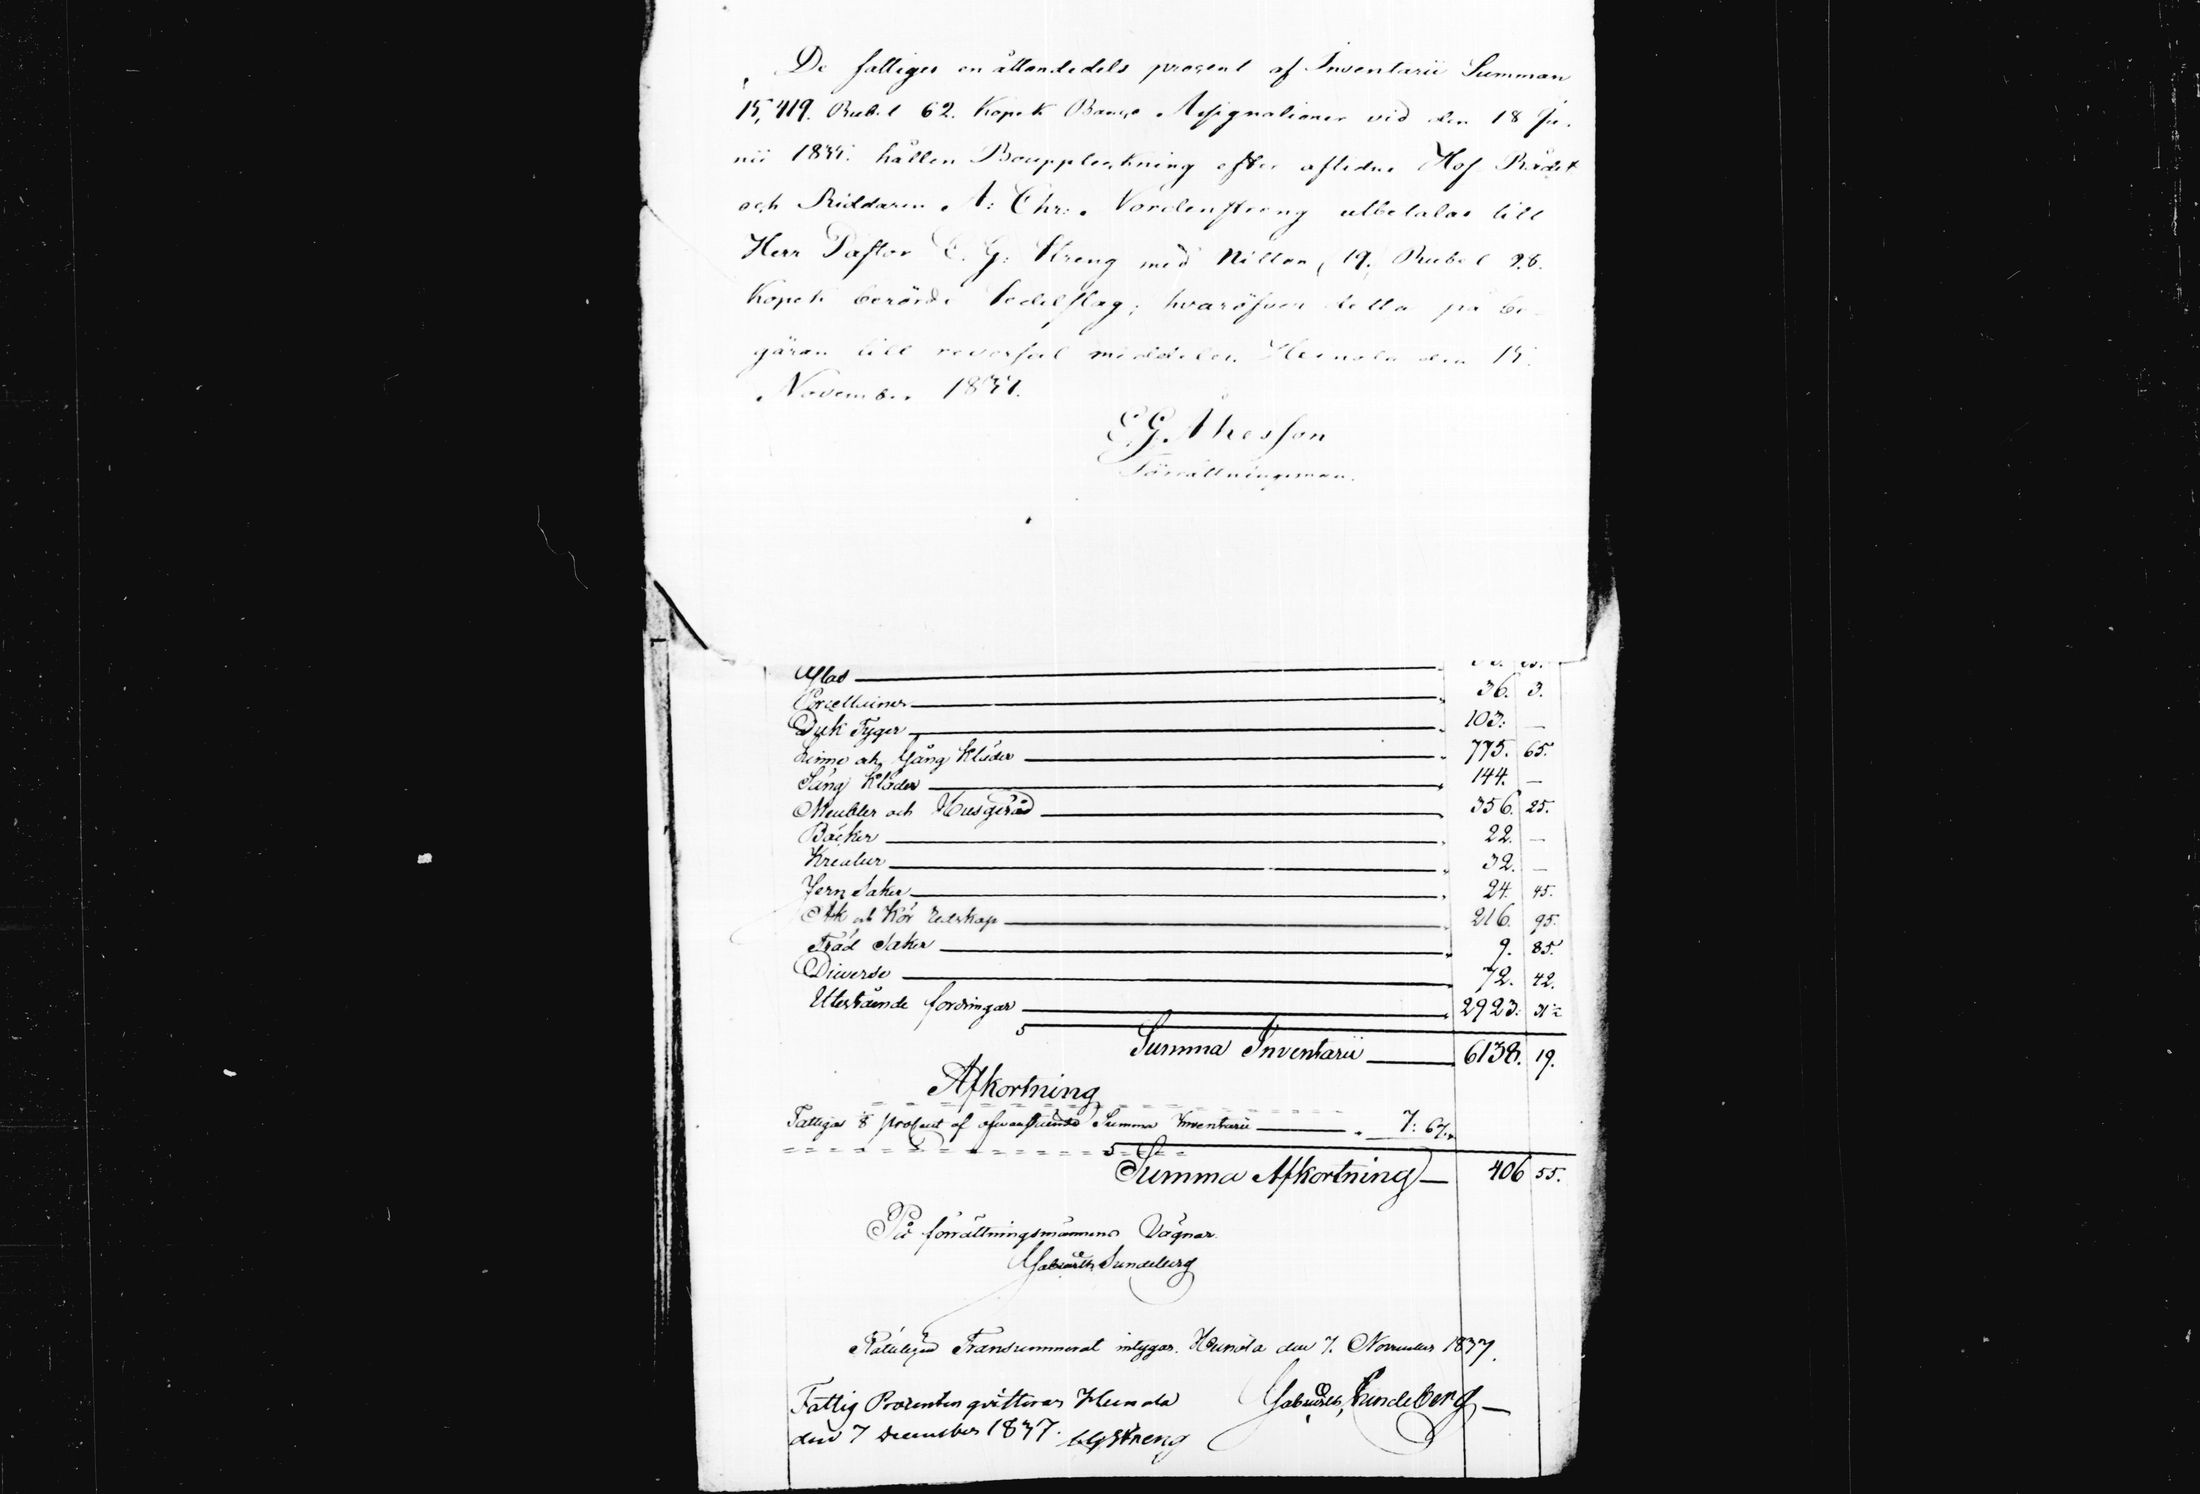 De fattiges en åttondedels procent af Inventarii Summan
15,419. Rubel 62. Kopek Banco Assignationer vid den 18 Ju-
nii hållen Bouppteckning efter aflidne Hof Rådet
och Riddaren A: Chr: Nordenstreng utbetalas till
Herr Pastor E. G: Streng med Nitton, 19, Rubel
Kopek berörde Sedelslag; hvaröfver detta på be-
gäran till reversal meddelas. Heinola den 15.
November
E. G. Åkesson
Förrättningsman.
Glas
Porcellainer 36. 3.
Duk Tyger 103. —
Linne och Gång Kläder 775. 65.
Säng Kläder 144. —
Meubler och Husgeråd 356. 25.
Böcker 22. —
Kreatur 32. —
Jern Saker 24. 45.
Åk och Kör redskap 216. 95.
Träd Saker 9. 85.
Diverse 72. 42.
Utestående fordringar 2923.
Summa Inventarii 6138. 19.
Afkortning
Fattiga procent af ofvanstående Summa Inventarii 7: 67.
Summa Afkortning 406 55.
På förrättningsmännens Vägnar.
Sundeberg
Transsummerat intygar. Heinola den 7. November 1837.
Fattig Procenten qvitteras Heinola
den 7 December 1837. Streng